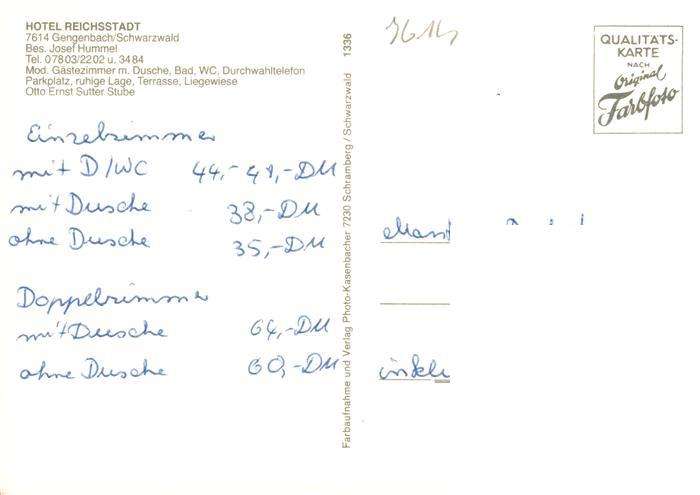 HOTEL REICHSSTADT
7614 Gengenbach/Schwarzwald
Bes. Josef Hummel
Tel. 07803/2202 u. 3484
Mod. Gästezimmer m. Dusche, Bad, WC, Durchwahltelefon
Parkplatz, ruhige Lage, Terrasse, Liegewiese
Otto Ernst Sutter Stube
Einzelzimmer
mit D/WC 44,- 49,-DM
mit Dusche 38,-DM
ohne Dusche 35,-DM
Doppelzimmer
mit Dusche 64,-DM
ohne Dusche 60,-DM
Farbaufnahme und Verlag Photo-Kasenbacher 7230 Schramberg / Schwarzwald 1336
7614
QUALITÄTS-
KARTE
NACH
Original
Farbfoto